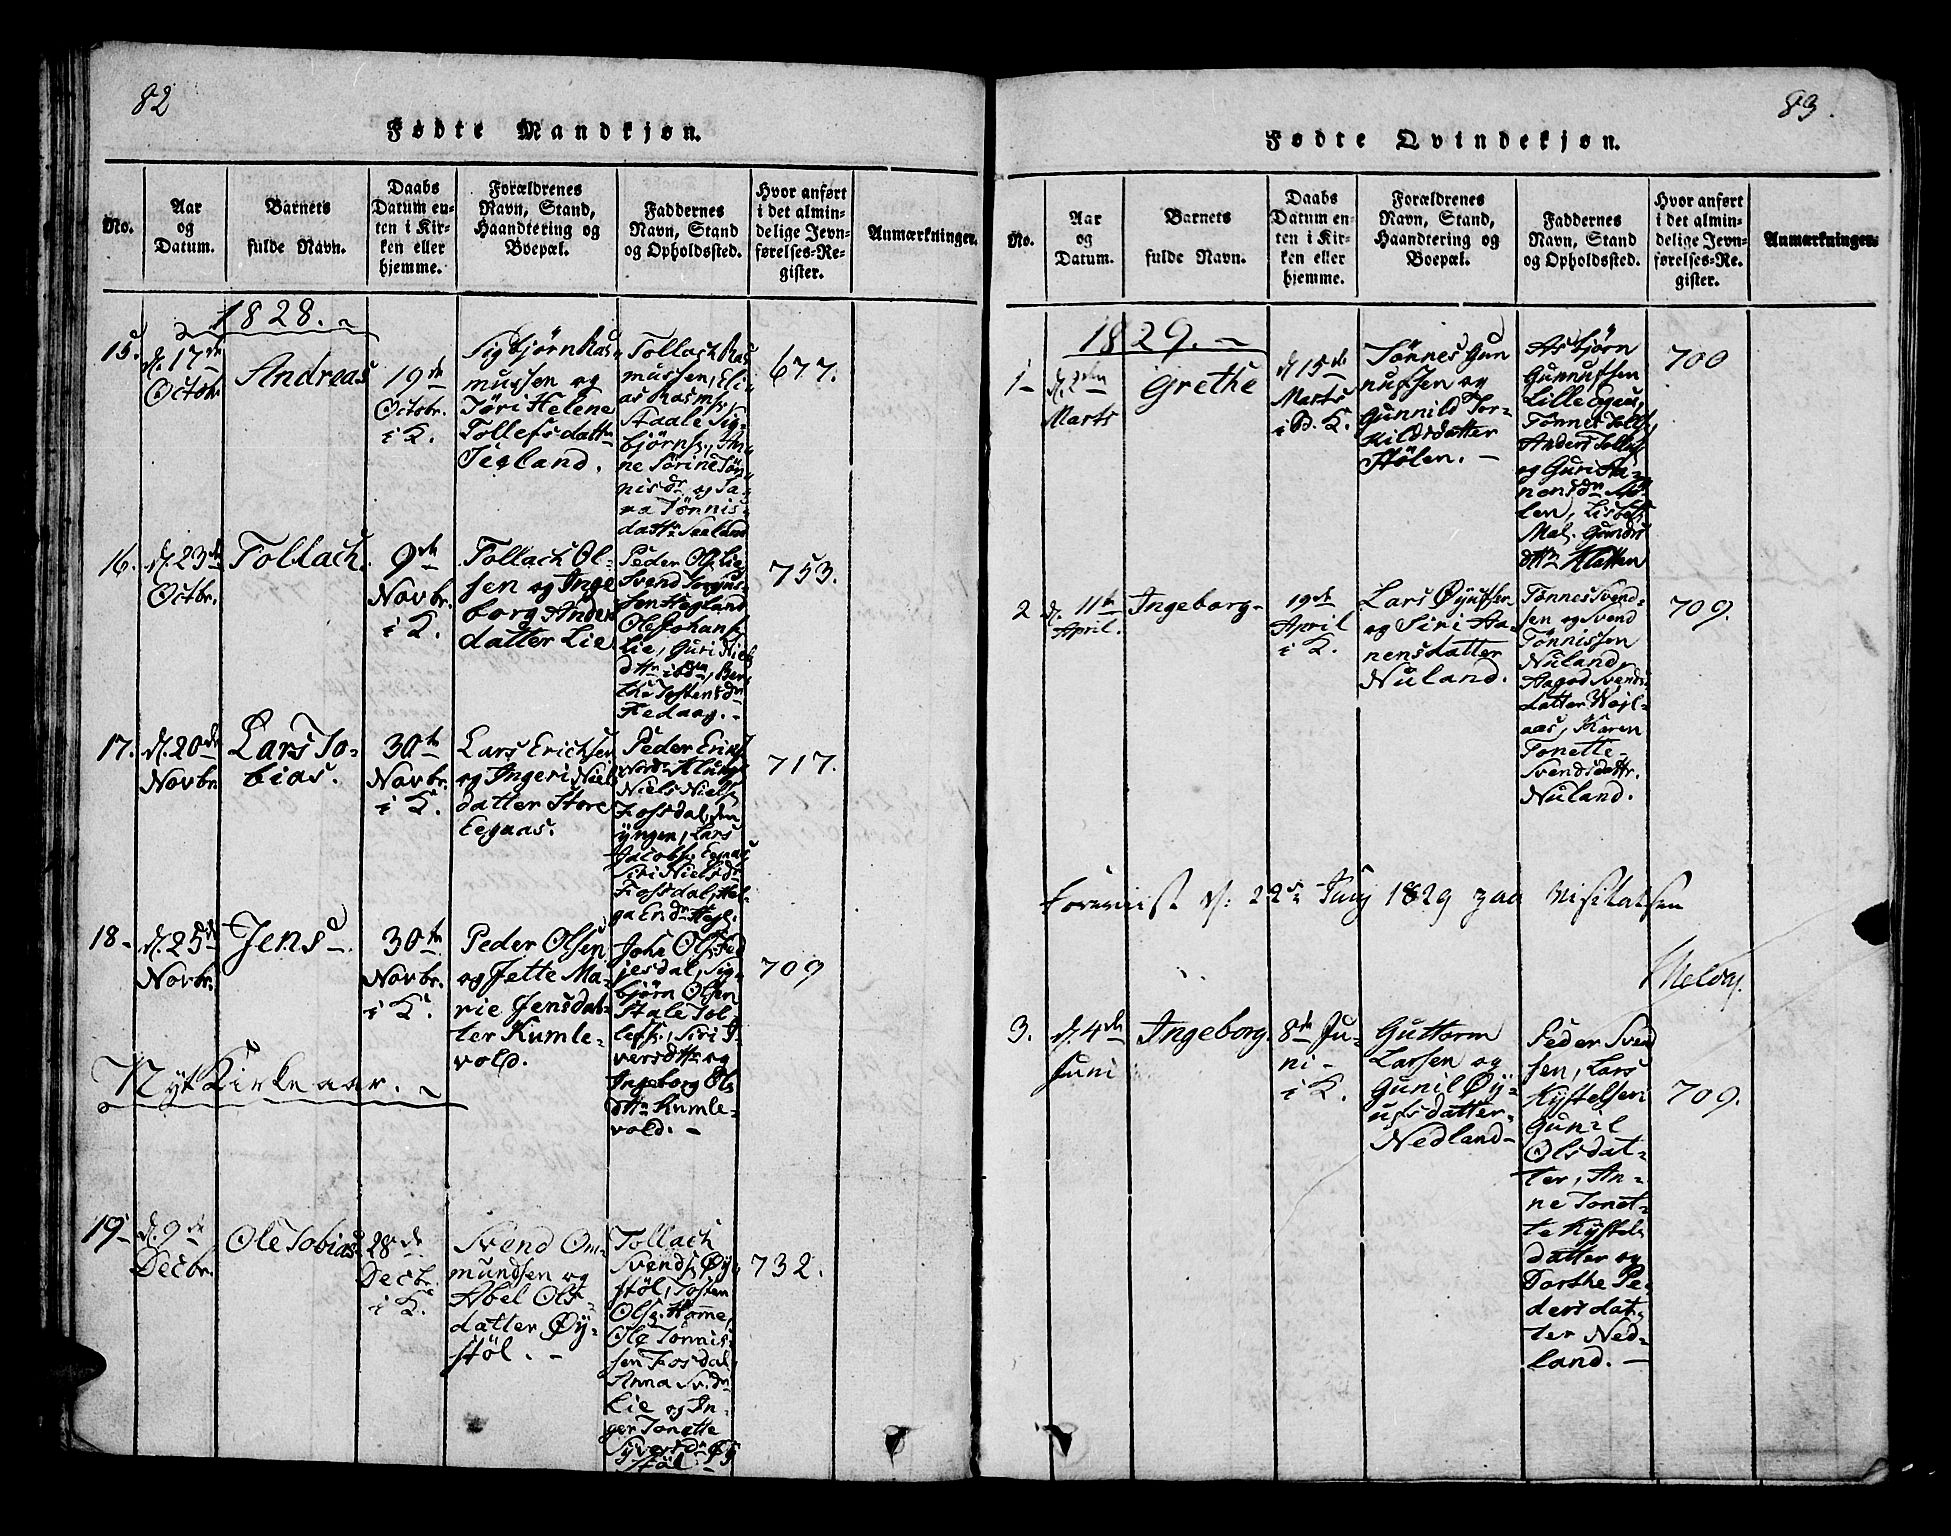 82
Fødte Mandkjøn.
No.
Aar
og
Datum.
Barnets
fulde Navn.
Daabs
Datum en-
ten i Kir-
ken eller
hjemme.
Forældrenes
Navn, Stand,
Haandtering og
Boepæl.
Faddernes
Navn, Stand
og Opholdssted.
Hvor anført
i det almin-
delige Jevn-
førelses-Re-
gister.
Anmærkninger.
1828.
15.
d. 17de
Octobr.
Andreas
19de
Octobr.
i K.
Sigbjørn Ras-
mussen og
Jøri Helene
Tollefsdatter
Sigland.
Tollach Ras
mussen, Eli-
as Rasms.,
Staale Sig-
bjørns., An-
ne Sørine Tøn
nisdr og Sa-
ra Tønnis-
dattr
677.
16.
d. 23de
Octbr.
Tollach.
9de
Novbr.
i K.
Tollach Ol-
sen og Inge
borg Anders
datter Lie
Peder Ols. Lie
Svend Torgus-
sen Hegland
Ole Johans.
Lie, Guri Niels
dttr ibdm, Ber-
the Tostensdr
Fedaag.
753.
17.
d. 20de
Novbr.
Lars To-
bias.
30te
Novbr.
i K.
Lars Erichsen
og Ingeri Niels
datter Store
Eegaas.
Peder Erichs.
Niels Niels.
Fossdal, den
yngen, Lars
Jacobs. Eegaas
Siri Nielsdr
Fossdal, Hel-
ga
717.
18
d. 25de
Novbr.
Jens
30te
Novbr.
i K.
Peder Olsen
og Jette Ma-
rie Jensdat-
ter Kumle-
vold.
Johs Ols. Fed
jesdal, Sig-
bjørn Olsen
Stale Tol-
lefs., Siri I-
versdttr og
Ingeborg Ols
dttr Kumle-
vold.
709
Nyt Kirkeaar.
19
d. 9de
Decbr.
Ole Tobias
28de
Decbr.
i K.
Svend Om-
mundsen og
Abel Ols-
datter Øy-
støl.
Tollach
Svends. Øy-
støl, Tosten
Ols. Homme,
Ole Tønnis-
sen Fosdal
Anna Sv.dr
Lie og In-
ger Tonette
Syversdr Øy
støl.
732.
83.
Fødte Qvindekjøn.
No.
Aar
og
Datum.
Barnets
fulde Navn.
Daabs
Datum en-
ten i Kir-
ken eller
hjemme.
Forældrenes
Navn, Stand,
Haandtering og
Boepæl.
Faddernes
Navn, Stand
og Opholdssted.
Hvor anført
i det almin-
delige Jevn-
førelses-Re-
gister.
Anmærkninger.
1829.
1
d. 2den
Marts
Grethe
d. 15de
Marts
i B. K.
Tønnes Gun
nufsen og
Gunnild Tor-
kildsdatter
Stølen.
Asbjørn
Gunnufsen
Lille Ogen,
Tønnes Tolls.,
Anders Tolls.
og Guri Aa-
nensdr Stø-
len, Lisbet
Mal. Gunds
dttr Klatten
700
2
d. 11te
April.
Ingeborg
19de
April
i K.
Lars Øyufsen
og Siri Aa-
nensdatter
Nuland.
Tønnes Svend-
sen og Svend
Tønnissen
Nuland,
Aagod Svends-
datter Vejl-
aas, Karen
Tonette
Svendsdattr.
Nuland.
709.
d: 22de Juny 1829 paa Visitatsen
3.
d. 4de
Juni
Ingeborg.
8de Ju-
ni
i K.
Guttorm
Larsen og
Gunil Øy-
ufsdatter
Nedland
Peder Svend
sen, Lars
Kystelsen
Gunil
Olsdat-
ter, An-
ne Tonet-
te Kystels
datter og
Dorthe Pe-
dersdat-
ter Ned-
land.
709.